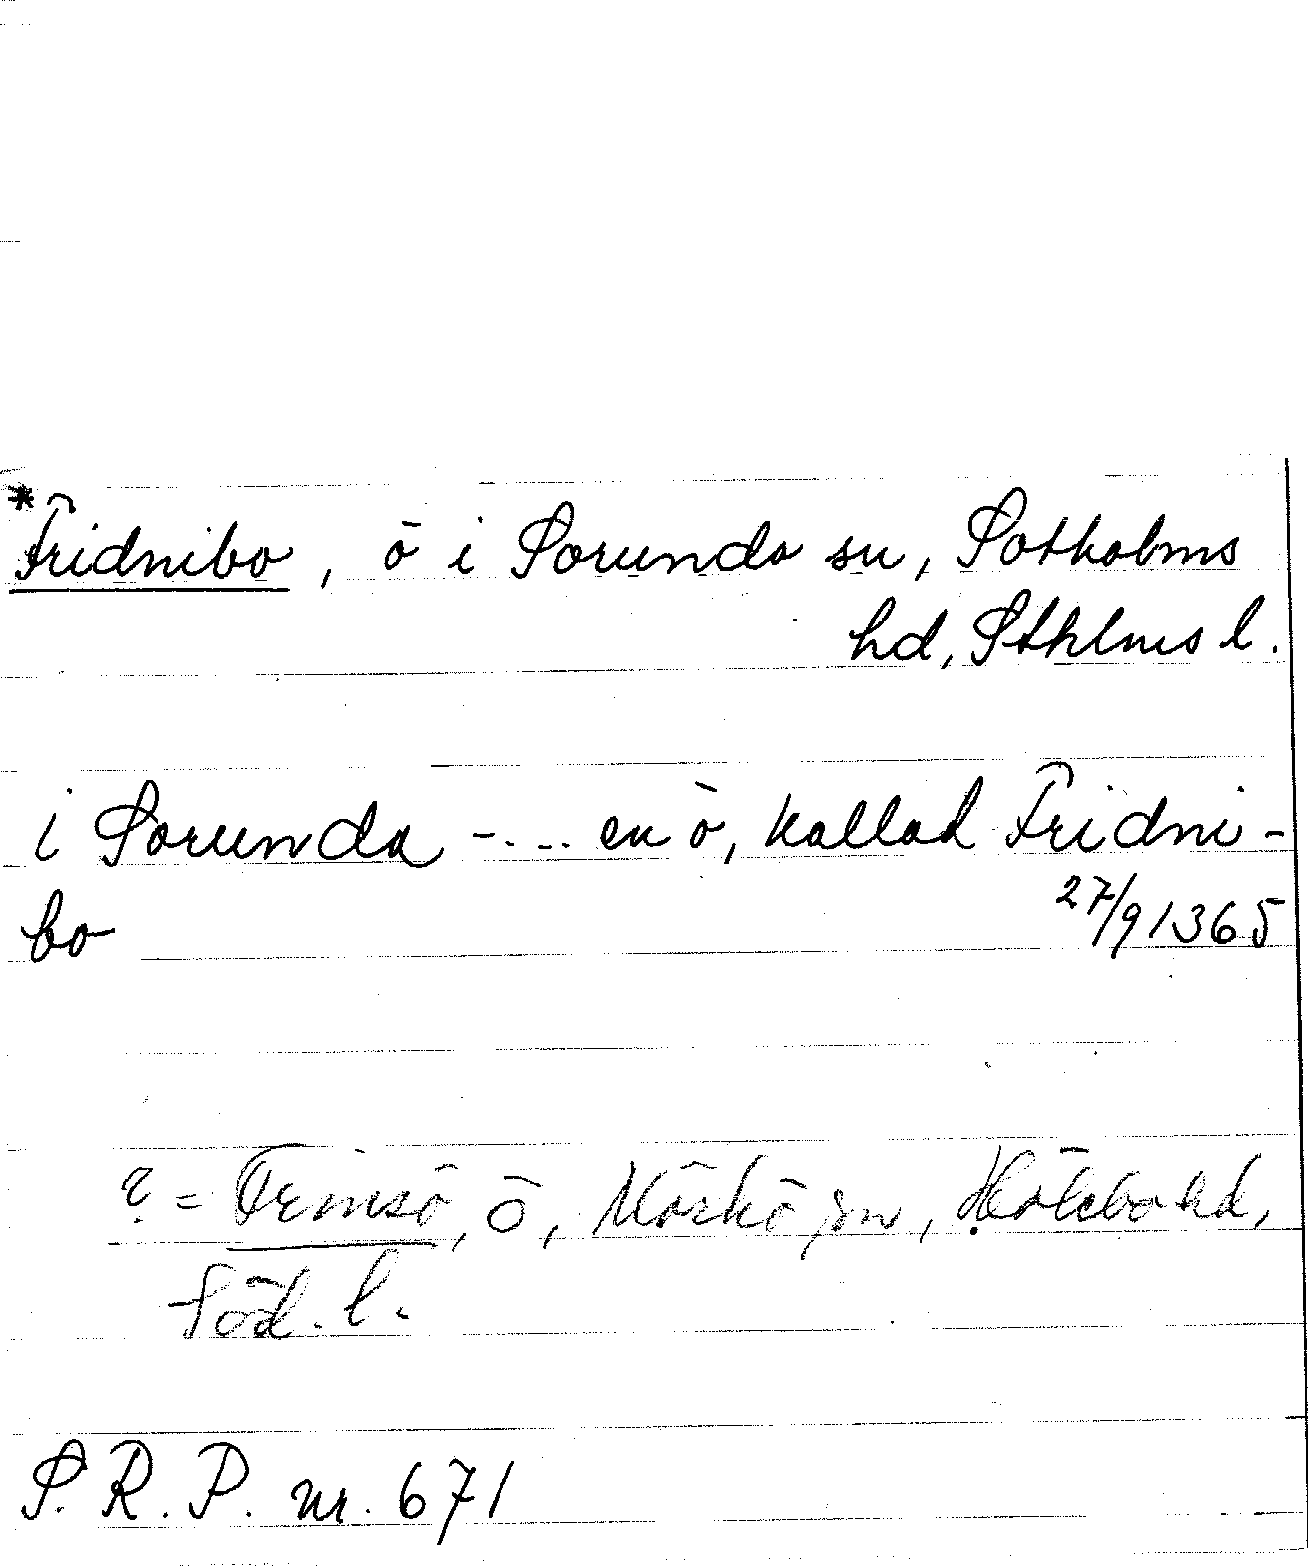 *Fridnibo, ö i Sorunda sn, Sotholms
hd, Sthlms l.
i Sorunda -... en ö, kallad Fridni-
bo
27/9 1365
? = Ormsö, ö, Mörkö sn, Hölebo hd,
Söd. l.
S. R. P. nr. 671